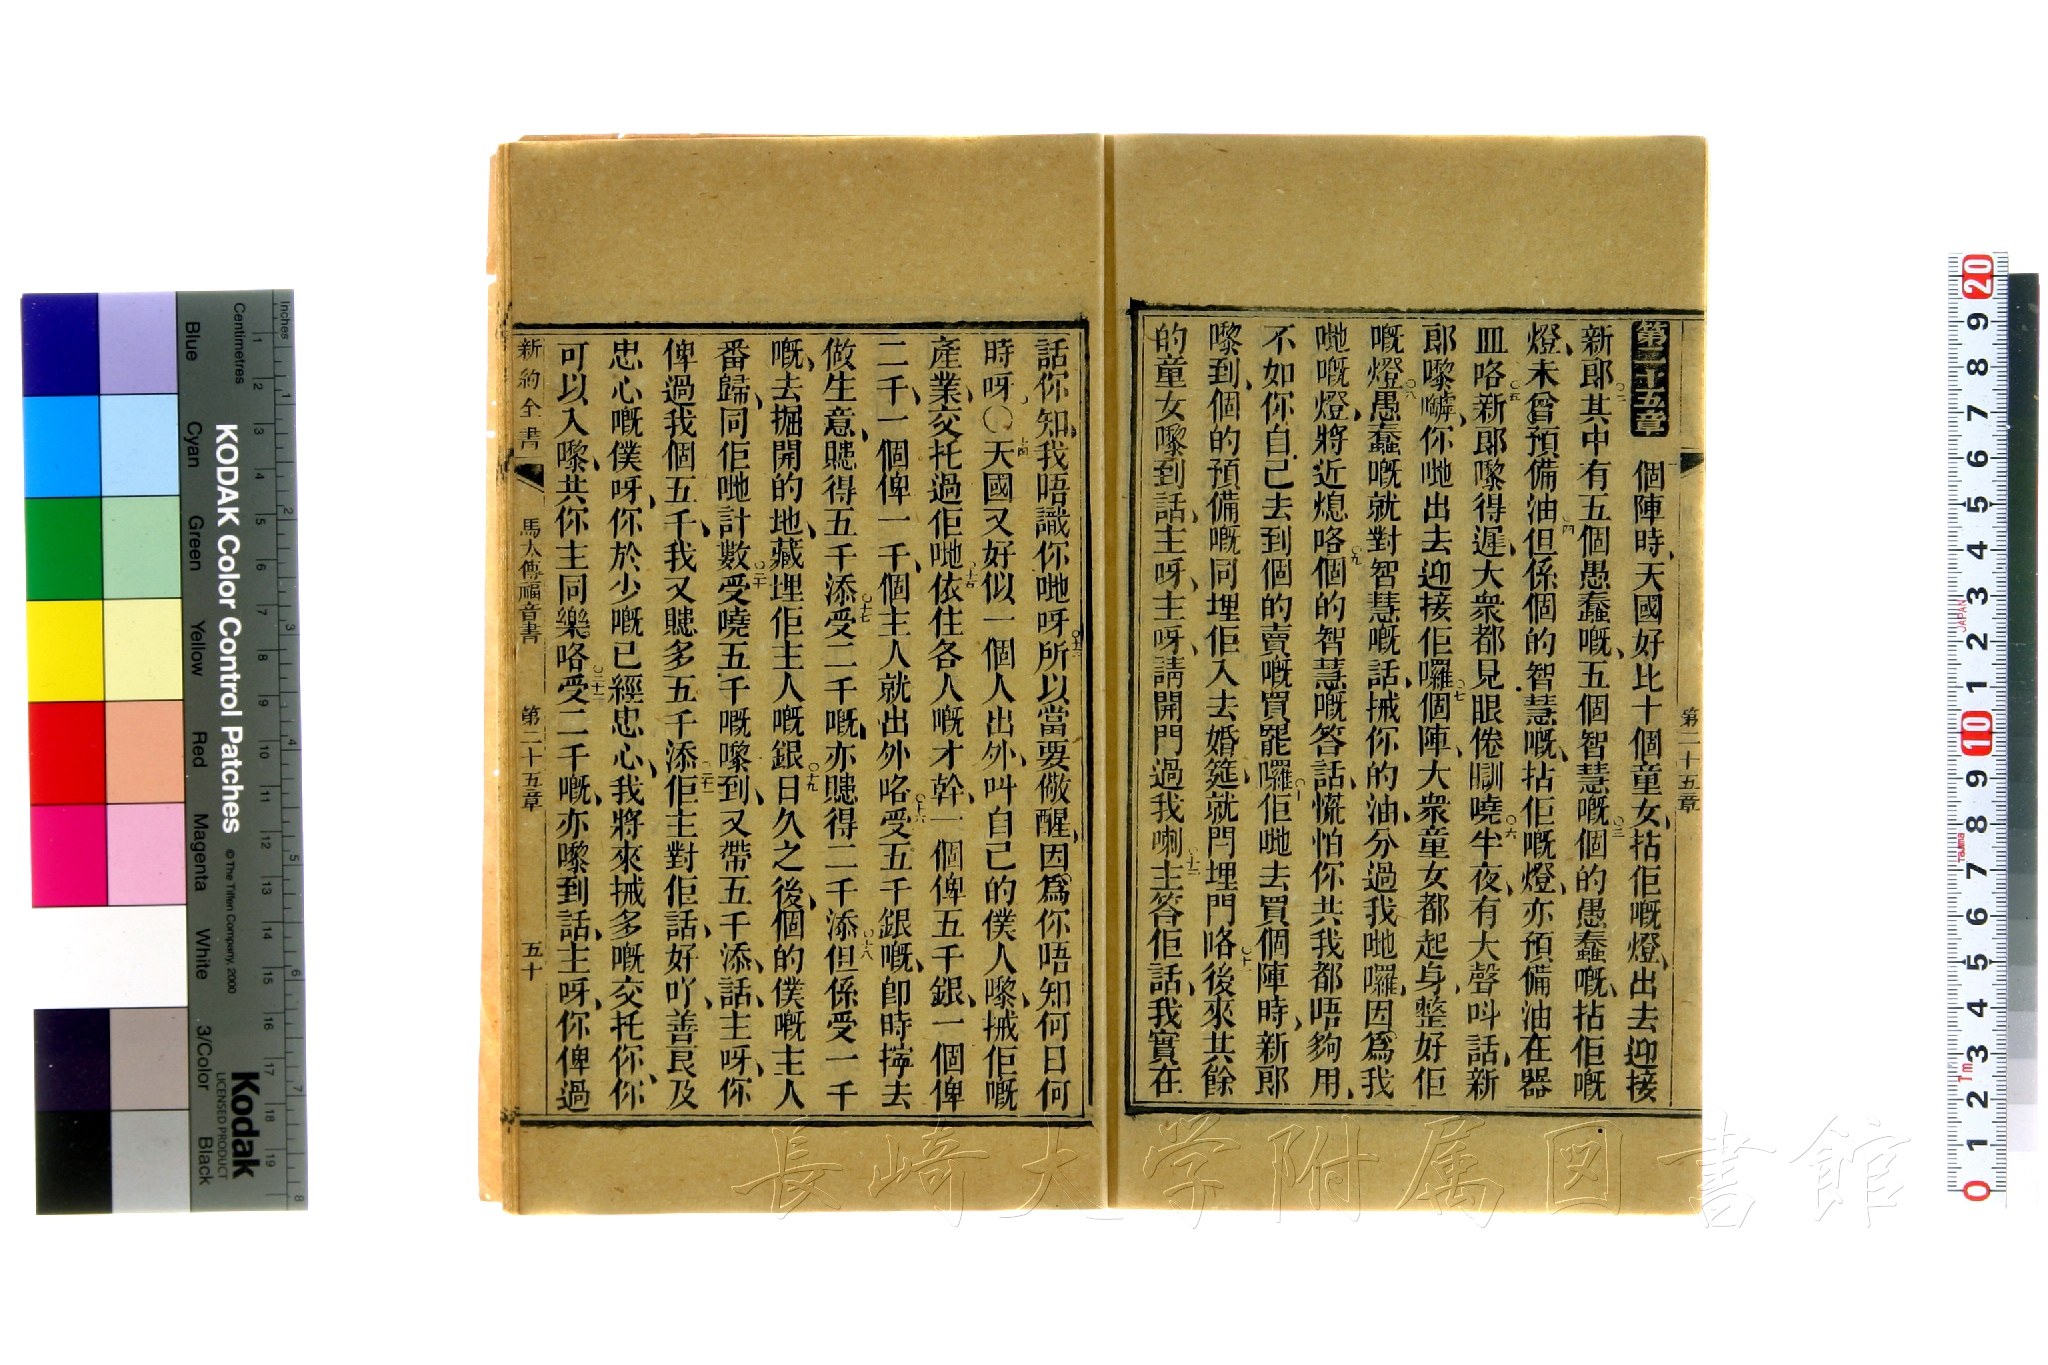 第二十五章
第二十五章 個陣時、天國好比十個童女、拈佢嘅燈、出去迎接
新郎、〇二其中有五個愚蠢嘅、五個智慧嘅、〇三個的愚蠢嘅、拈佢嘅
燈、未曾預備油、〇四但係個的智慧嘅、拈佢嘅燈、亦預備油在器
皿咯、〇五新郎嚟得遲、大衆都見眼倦瞓嘵、〇六半夜、有大聲呌話、新
郎嚟嘑、你哋出去迎接佢囉、〇七個陣、大衆童女都起身、整好佢
嘅燈、〇八愚蠢嘅就對智慧嘅話、𢬿你的油、分過我哋囉、因爲我
哋嘅燈、將近熄咯、〇九個的智慧嘅答話、慌怕你共我都唔夠用、
不如你自己去到個的賣嘅買罷囉、〇十佢哋去買個陣時、新郎
嚟到、個的預備嘅同埋佢入去婚筵、就閂埋門咯、〇十一後來其餘
的童女嚟到話、主呀、主呀、請開門過我喇、〇十二主答佢話、我實在
話你知、我唔識你哋呀、〇十三所以當要儆醒、因爲你唔知何日何
時呀、〇〇十四天國又好似一個人出外、呌自己的僕人嚟、𢬿佢嘅
產業、交托過佢哋、〇十五依住各人嘅才幹、一個俾五千銀、一個俾
二千、一個俾一千、個主人就出外咯、〇十六受五千銀嘅、卽時擰去
做生意、賺得五千添、〇十七受二千嘅、亦賺得二千添、〇十八但係受一千
嘅、去掘開的地、藏埋佢主人嘅銀、〇十九日久之後、個的僕嘅主人
番歸、同佢哋計數、〇二十受嘵五千嘅嚟到、又帶五千添、話、主呀、你
俾過我個五千、我又賺多五千添、〇二十一佢主對佢話、好吖、善良及
忠心嘅僕呀、你於少嘅已經忠心、我將來𢬿多嘅交托你、你
可以入嚟、共你主同樂咯、〇二十二受二千嘅、亦嚟到話、主呀、你俾過
新約全書 馬太傳福音書 第二十五章 五十
長崎大学附属図書館
KODAK Color Control Patches
© The Tiffen Company, 2000
Kodak
LICENSED PRODUCT
Inches
Centimetres
Blue Cyan Green Yellow Red Magenta White 3/Color Black
JAPAN
Tajima